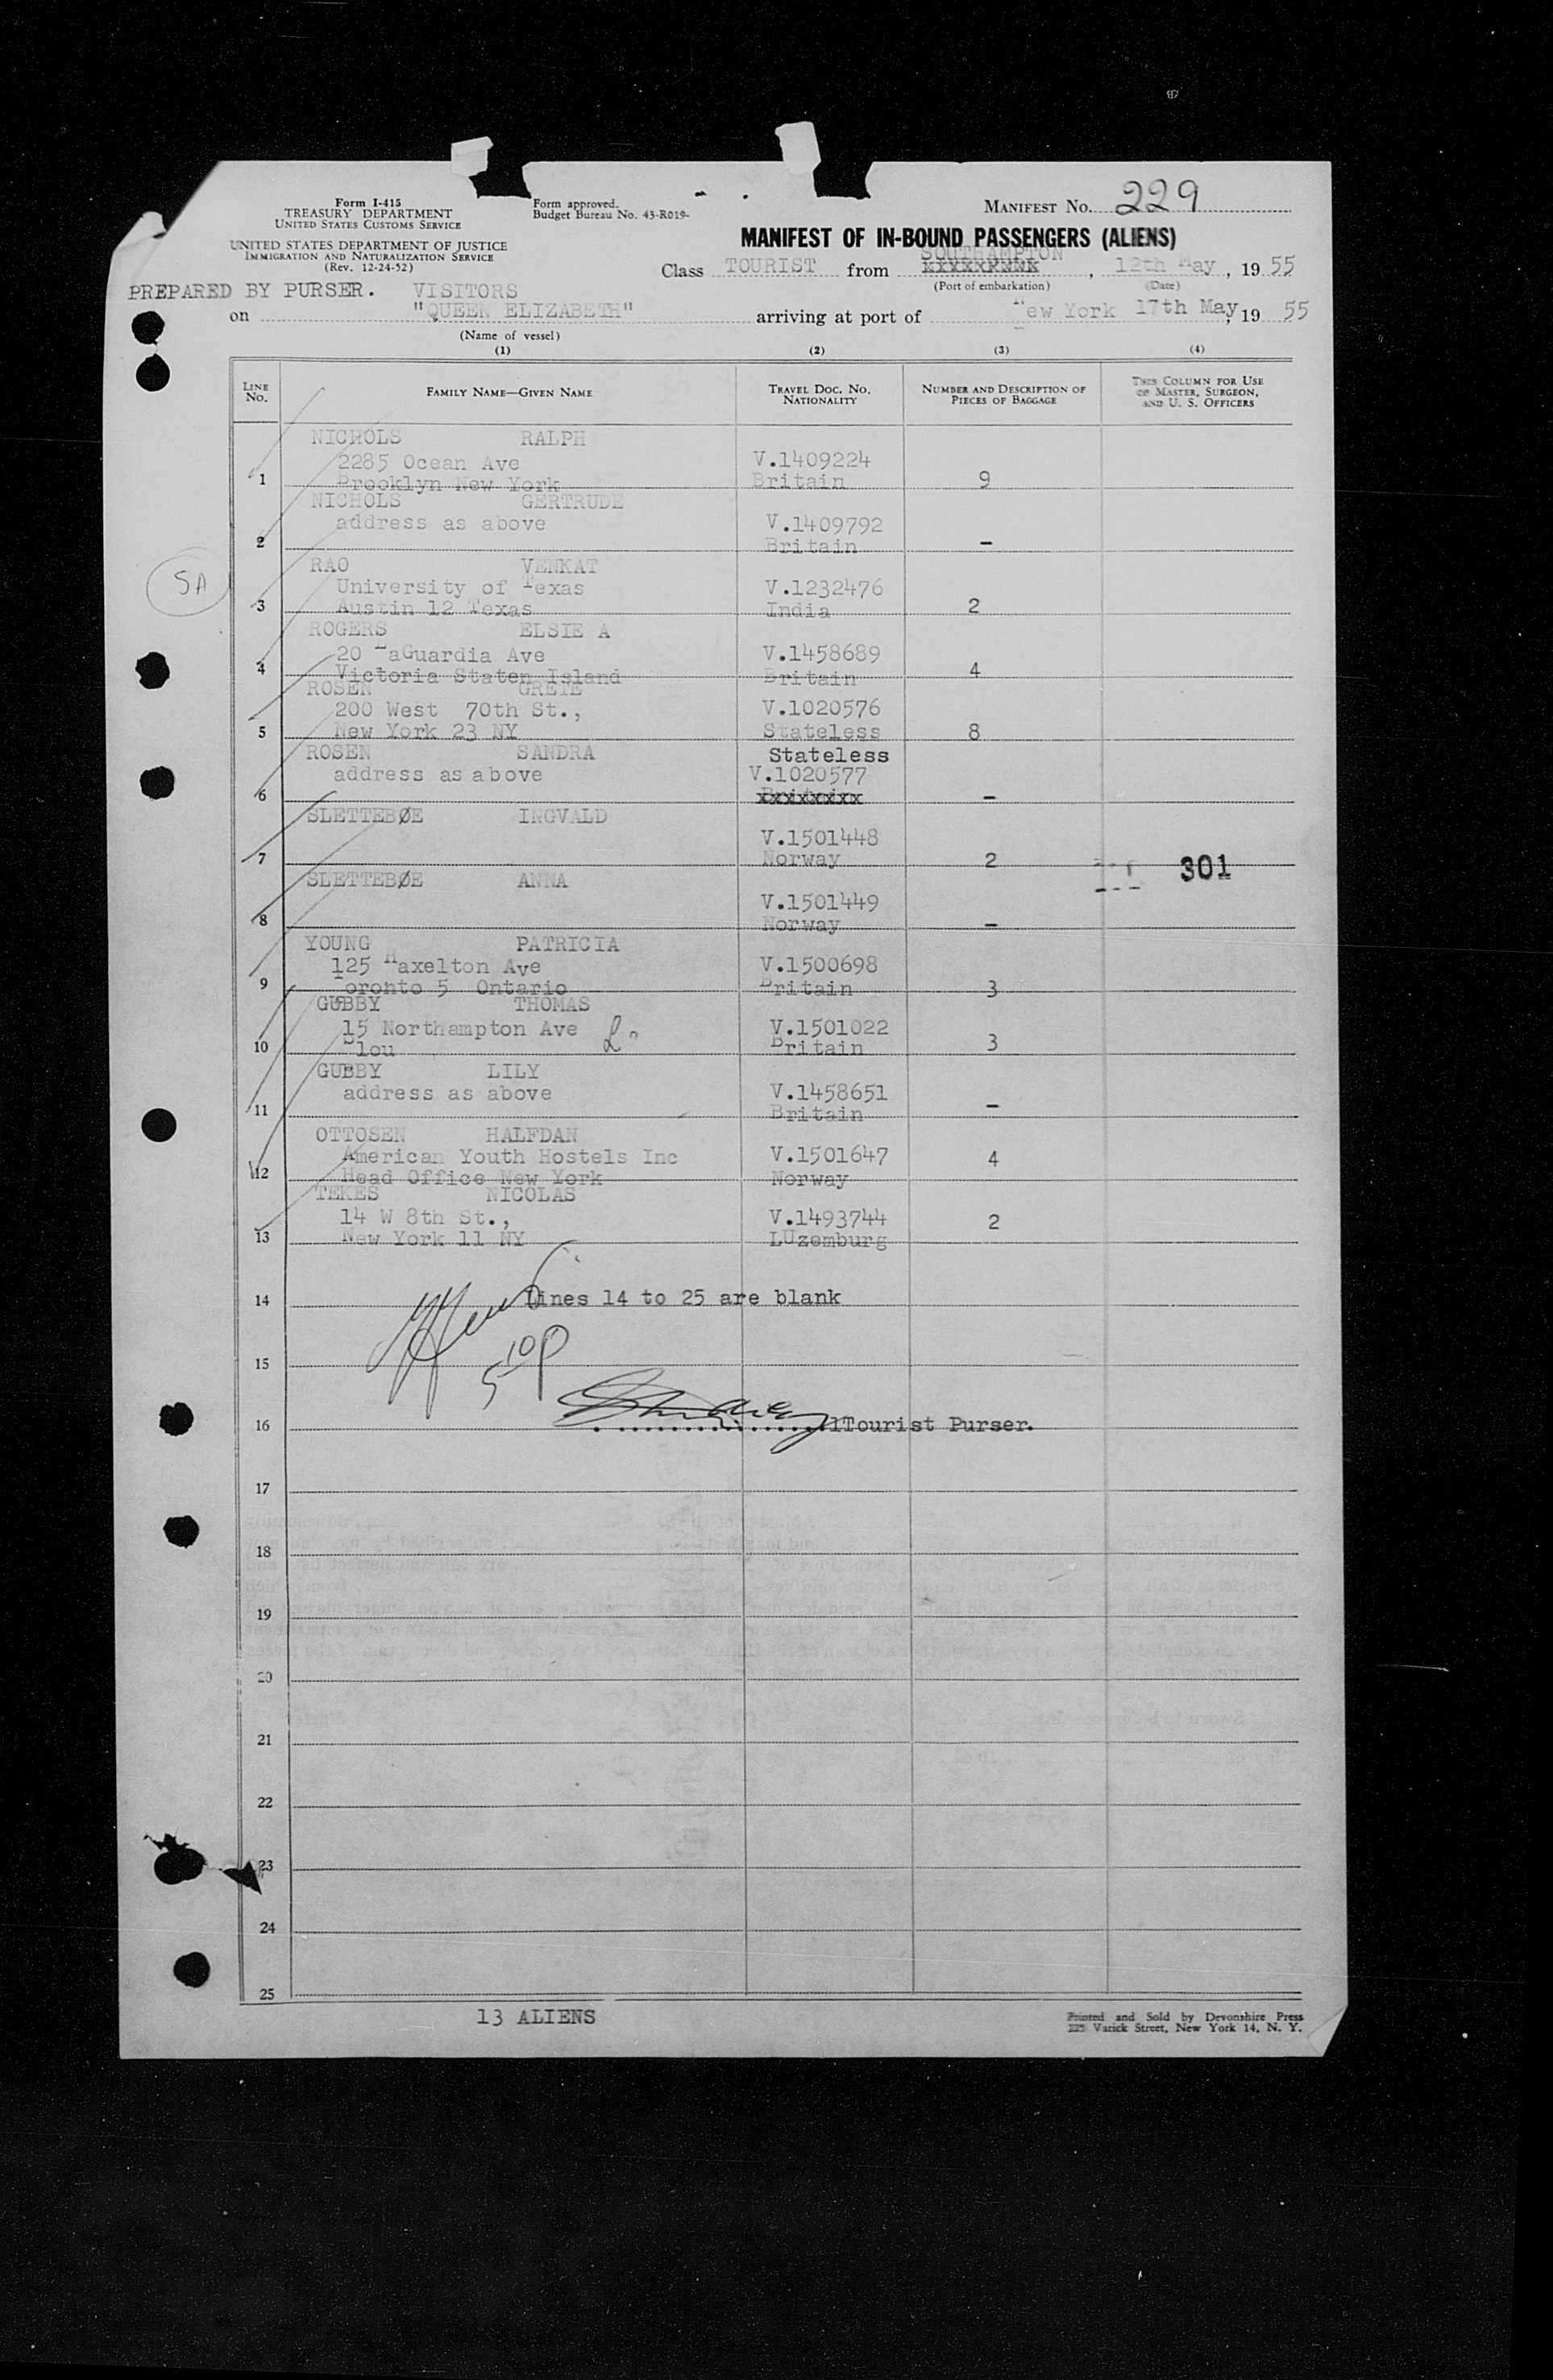 Form I-415
TREASURY DEPARTMENT
UNITED STATES CUSTOMS SERVICE
UNITED STATES DEPARTMENT OF JUSTICE
IMMIGRATION AND NATURALIZATION SERVICE
(Rev. 12-24-52)
Form approved.
Budget Bureau No. 43-R019-
MANIFEST NO. 229
MANIFEST OF IN-BOUND PASSENGERS (ALIENS)
SOUTHAMPTON
Class TOURIST from , 12th May, 19 55
(Port of embarkation) (Date)
PREPARED BY PURSER. VISITORS
on "QUEEN ELIZABETH" arriving at port of New York 17th May, 19 55
(Name of vessel)
(1) (2) (3) (4)
LINE No. FAMILY NAME—GIVEN NAME TRAVEL DOC. NO. NATIONALITY NUMBER AND DESCRIPTION OF PIECES OF BAGGAGE THIS COLUMN FOR USE OF MASTER, SURGEON, AND U. S. OFFICERS
NICHOLS RALPH
2285 Ocean Ave V.1409224
1 Brooklyn New York Britain 9
NICHOLS GERTRUDE
address as above V.1409792
2 Britain –
RAO VENKAT
5A University of Texas V.1232476
3 Austin 12 Texas India 2
ROGERS ELSIE A
20 LaGuardia Ave V.1458689
4 Victoria Staten Island Britain 4
ROSEN GRETE
200 West 70th St., V.1020576
5 New York 23 NY Stateless 8
ROSEN SANDRA Stateless
address as above V.1020577
6 xxxxxxxx –
SLETTEBØE INGVALD
V.1501448
7 Norway 2 301
SLETTEBØE ANNA
V.1501449
8 Norway –
YOUNG PATRICIA
125 Haxelton Ave V.1500698
9 Toronto 5 Ontario Britain 3
GUBBY THOMAS
15 Northampton Ave V.1501022
10 Slou Britain 3
GUBBY LILY
address as above V.1458651
11 Britain –
OTTOSEN HALFDAN
American Youth Hostels Inc V.1501647 4
12 Head Office New York Norway
TEKES NICOLAS
14 W 8th St., V.1493744 2
13 New York 11 NY LUzemburg
14 Lines 14 to 25 are blank
510p
15
16 Tourist Purser.
17
18
19
20
21
22
23
24
25
13 ALIENS
Printed and Sold by Devonshire Press
225 Varick Street, New York 14, N. Y.